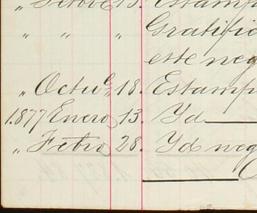 " Febre 15. Estamp
" " " Gratific
este neg
" Octue 18. Estamp
1.877 Enero 13. Yd
" Febro 28. Yd neg